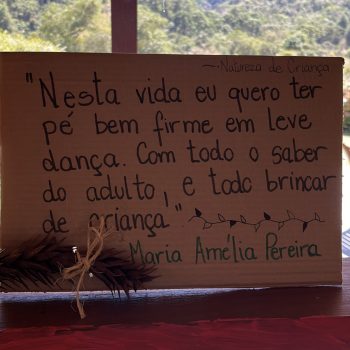 → Natureza de Criança
"Nesta vida eu quero ter
pé bem firme em leve
dança. Com todo o saber
do adulto, e todo brincar
de criança"
Maria Amélia Pereira